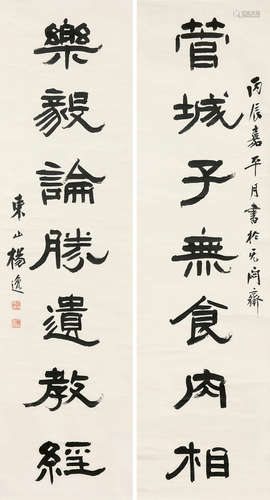 丙辰嘉平月書於元齋
管城子無食肉相
樂毅論勝遺教經
東山楊逸